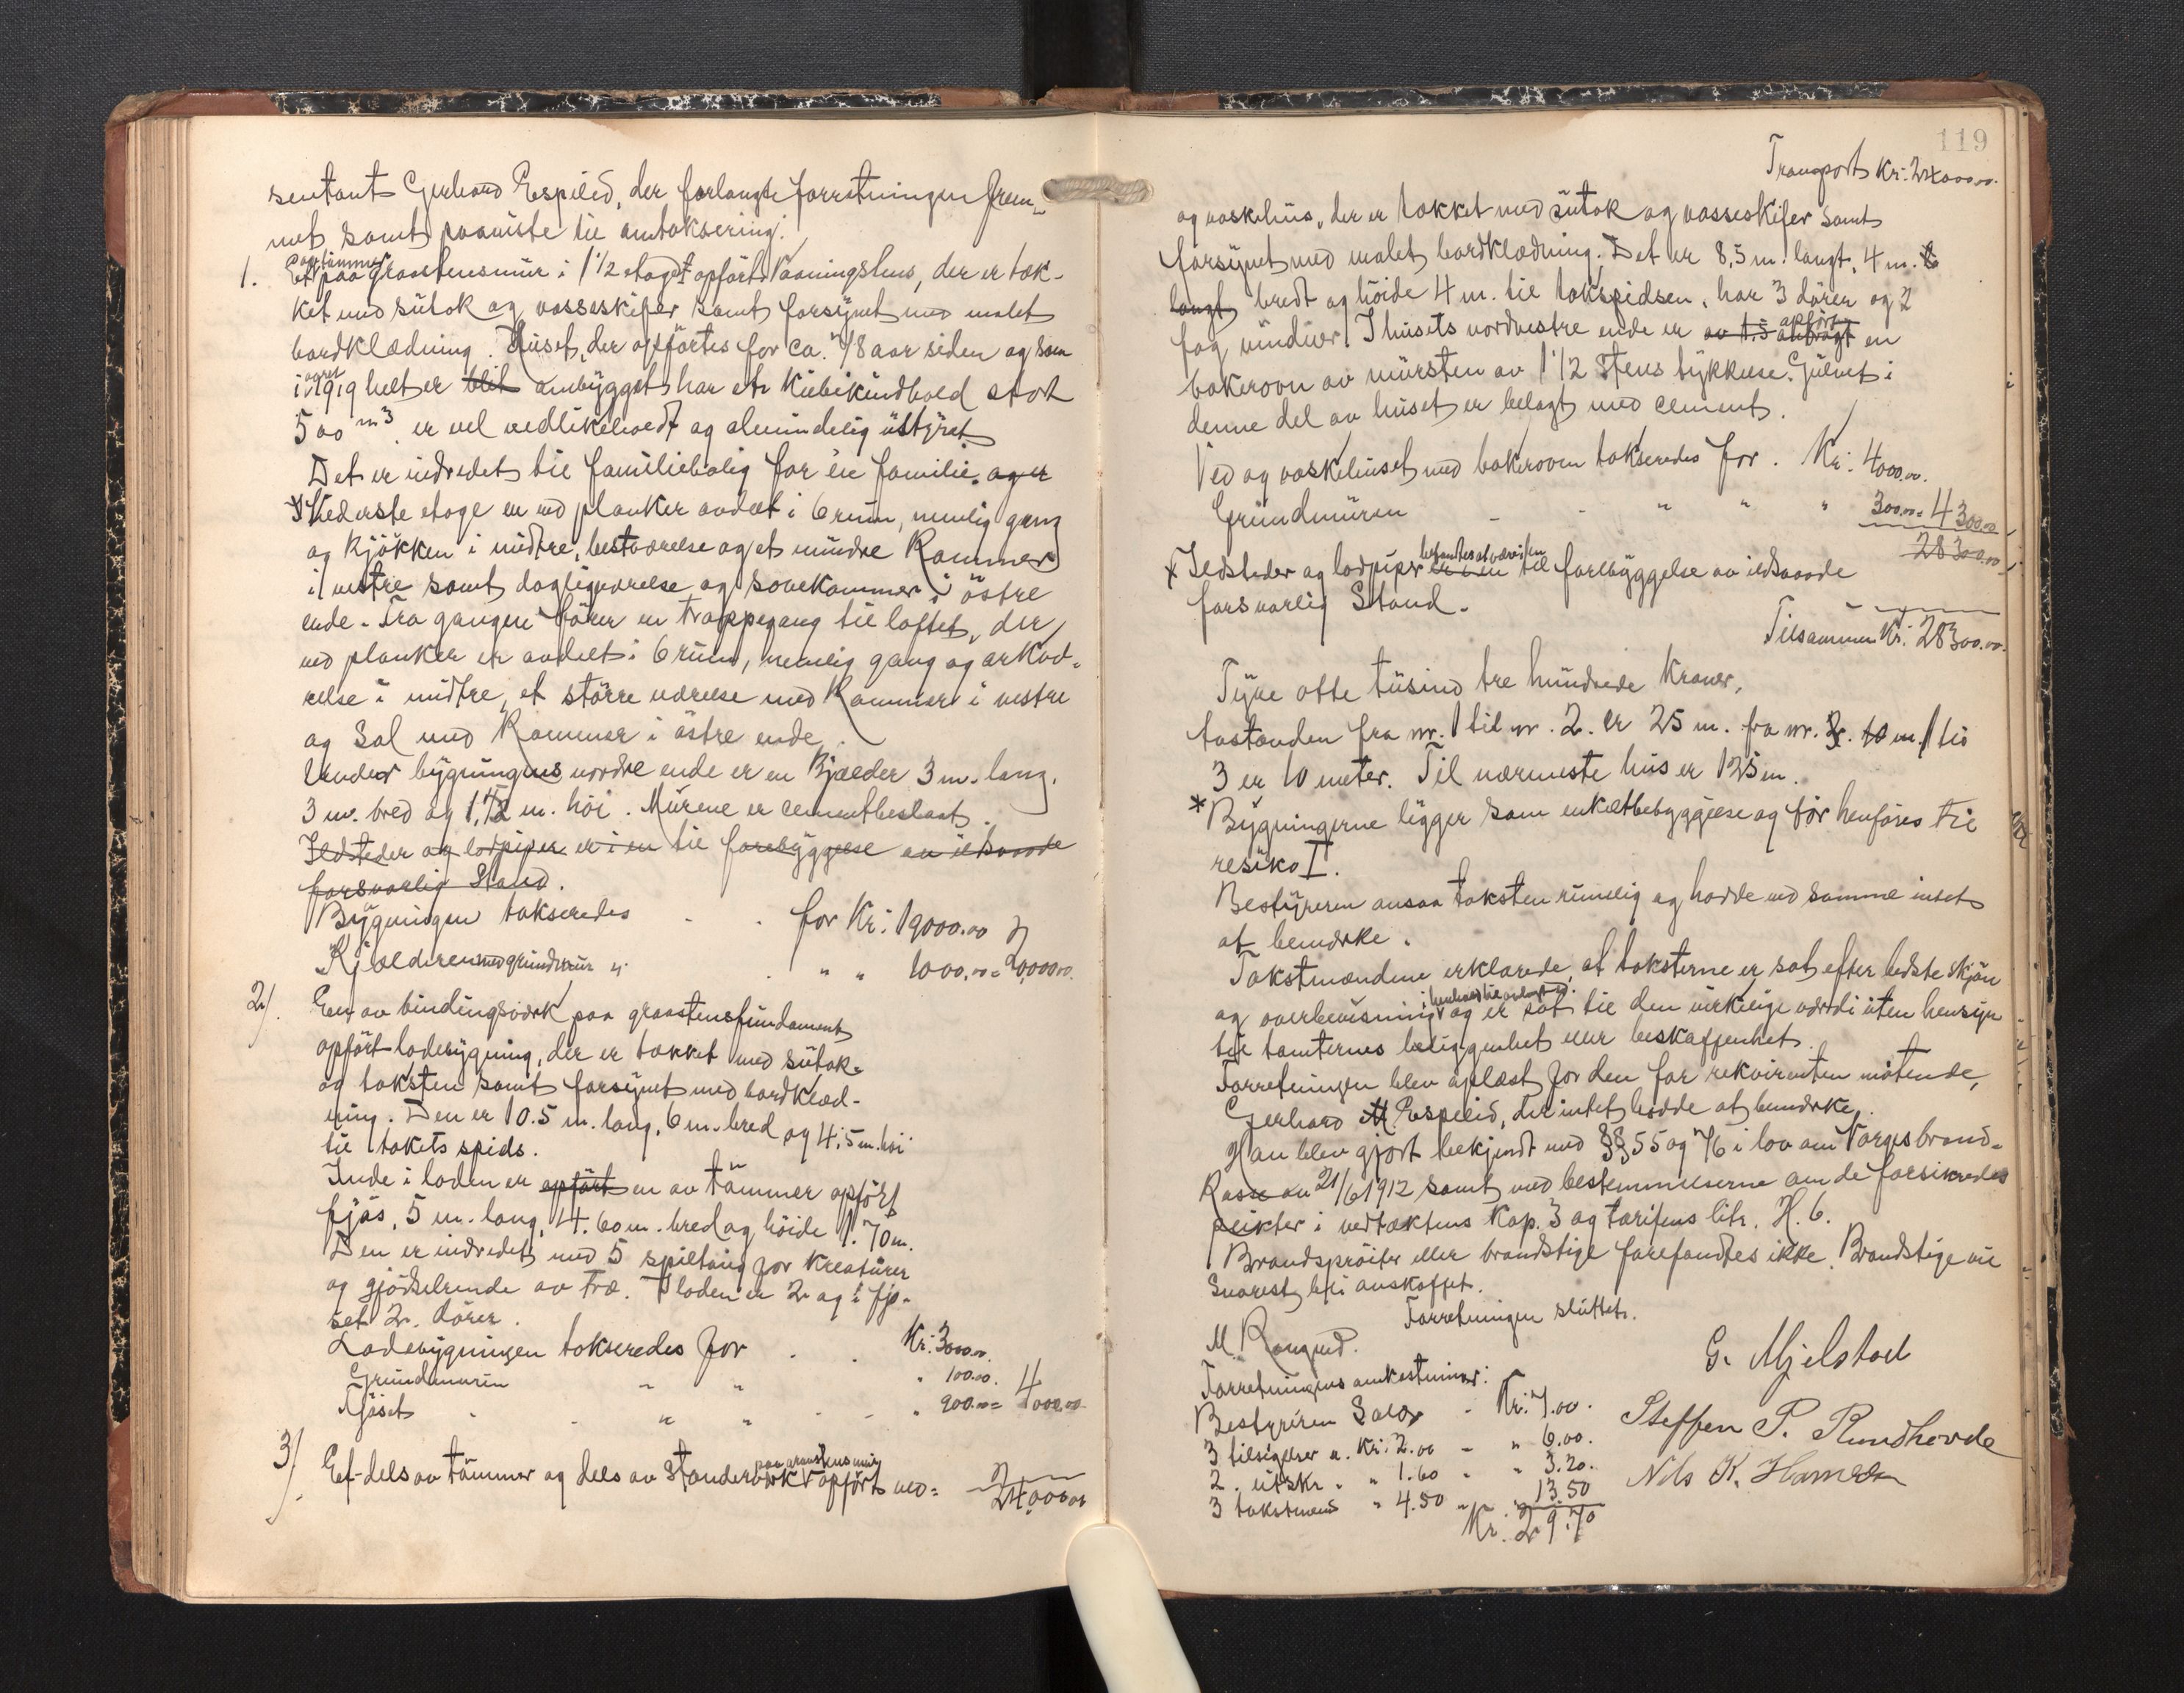 sentant Gerhard Espelid, der forlangte forretningen frem-
met samt paaviste til omtaksering.
1. Et av tømmer paa graastensmur i 1 1/2 etaget opført Vaaningshus, der er tæk-
ket med sutak og vosseskifer samt forsynet med malet
bordklædning. Huset, der opførtes for ca. 48 aar siden og som
i aaret 1919 helt er blit ombygget har et Kubikindhold stort
500 m3. er vel vedlikeholdt og almindelig utstyret
Det er indredet til familiebolig for en familie. og er
Nederste etage er ved planker avdelt i 6 rum, nemlig gang
og Kjøkken i midtre, bestværelse og et mindre Kammer
i vestre samt dagligværelse og sovekammer i østre
ende. Fra gangen fører en trappegang til loftet, der
ved planker er avdelt i 6 rum, nemlig gang og arkvæ-
relse i midtre, et større værelse med Kammer i vestre
og Sal med Kammer i østre ende.
Under bygningens nordre ende er en Kjælder 3 m. lang,
3 m. bred og 1,72 m. høi. Murene er cementbeslaat.
Ildsteder og lodpiper er i en til forebyggelse av ildsvaade
forsvarlig Stand.
Bygningen takseredes for Kr: 19000.00
Kjælderen med grundmur " " " 1000.00 = 20,000.00
2/. En av bindingsværk paa graastensfundament
opført ladebygning, der er tækket med sutak
og taksten samt forsynet med bordklæd-
ning. Den er 10.5 m. lang, 6 m. bred og 4,5 m. høi
til takets spids.
Inde i laden er opført en av tømmer opført
fjøs, 5 m. lang, 4.60 m. bred og høide 1.70 m.
Den er indredet med 5 spiltaug for Kreaturer
og gjødselrende av træ. I laden er 2 og i fjø-
set 2. dører.
Ladebygningen takseredes for Kr: 3000.00.
Grundmuren " " " 100.00.
Fjøset " " " 900.00 = 4000.00
3/. Et dels av tømmer og dels av Standerværk paa graastensmur opført ved- 24,000.00
119
Transport Kr: 24000.00.
og vaskehus, der er tækket med sutak og vosseskifer samt
forsynet med malet bordklædning. Det er 8,5 m. langt, 4 m.
langt bredt og høide 4 m. til takspidsen, har 3 dører og 2
fag vinduer. I husets nordvestre ende er opført en
bakerovn av mursten av 1 1/2 Stens tykkelse. Gulvet i
denne del av huset er belagt med cement.
Ved og vaskehuset med bakerovn takseredes for. Kr: 4000.00.
Grundmuren - - " " " 300.00 = 4300.00
28300.00
* Ildsteder og lodpiper er i en til forebyggelse av ildsvaade
forsvarlig Stand.
Tilsammen Kr: 28300.00.
Tyve otte tusind tre hundrede Kroner.
Avstanden fra nr. 1 til nr. 2. er 25 m. fra nr. 2. 10 m. 1 til
3 er 10 meter. Til nærmeste hus er 125 m.
* Bygningerne ligger som enkeltbebyggelse og bør henføres til
resiko I.
Bestyreren ansaa taksten rimelig og hadde ved samme intet
at bemærke.
Takstmændene erklærede, at taksterne er sat efter bedste skjøn
og overbevisning og er sat til den virkelige værdi uten hensyn
til tomternes beliggenhet eller beskaffenhet.
Forretningen blev oplæst for den for rekvirenten møtende,
Gerhard M Espelid, der intet hadde at bemærke.
Han blev gjort bekjendt med §§ 55 og 76 i lov om Norges brand-
Kasse av 21/6 1912 samt med bestemmelserne om de forsikredes
plikter i vedtæktens Kap. 3 og tarifens litr. H. 6.
Brandsprøiter eller brandstige forefandtes ikke. Brandstige vil
snarest bli anskaffet.
Forretningen sluttet.
M. Rongved. G. Mjelstad
Forretningens omkostninger:
Bestyreren Salær - Kr: 7.00. Steffen P. Rundhovde
3 tilsigelser a. Kr: 2.00 - " 6.00.
2. utskr. " " 1.60 - " 3.20. Nils K. Hamre
3 takstmænd " 4.50 " " 13.50
Kr. 29.70